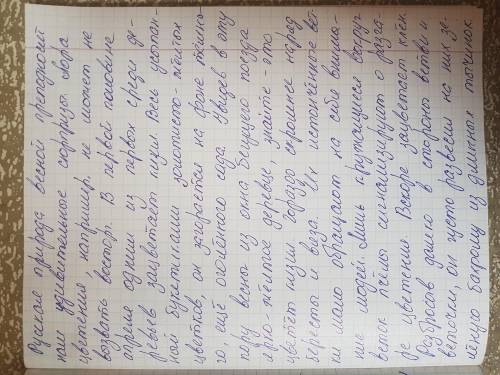 Русская природа весной преподносит
нам удивительные сюрпризы. Пора
цветения, например, не может не
возвать восторг. В первой половине
апреля одним из первых среди де-
ревьев зацветает кизил. Весь усыпан-
ный букетиками золотисто-жёлтых
цветков, он загорается на фоне тёмно-
го, ещё оголённого сада. Увидев в эту
пору весны из окна бегущего поезда
ярко-жёлтое деревце, знайте - это
цветёт кизил. Гораздо скромнее наряд
бересты и вяза. Их истончённые вет-
ви мало обращают на себя внима-
ние людей. Лишь кружащиеся вокруг
веток пчёлы сигнализируют о разга-
ре цветения. Вскоре зацветает клён.
Разбросав далеко в стороны ветви и
веточки, он густо развесил на них зе-
лёную бахрому из длинных тычинок